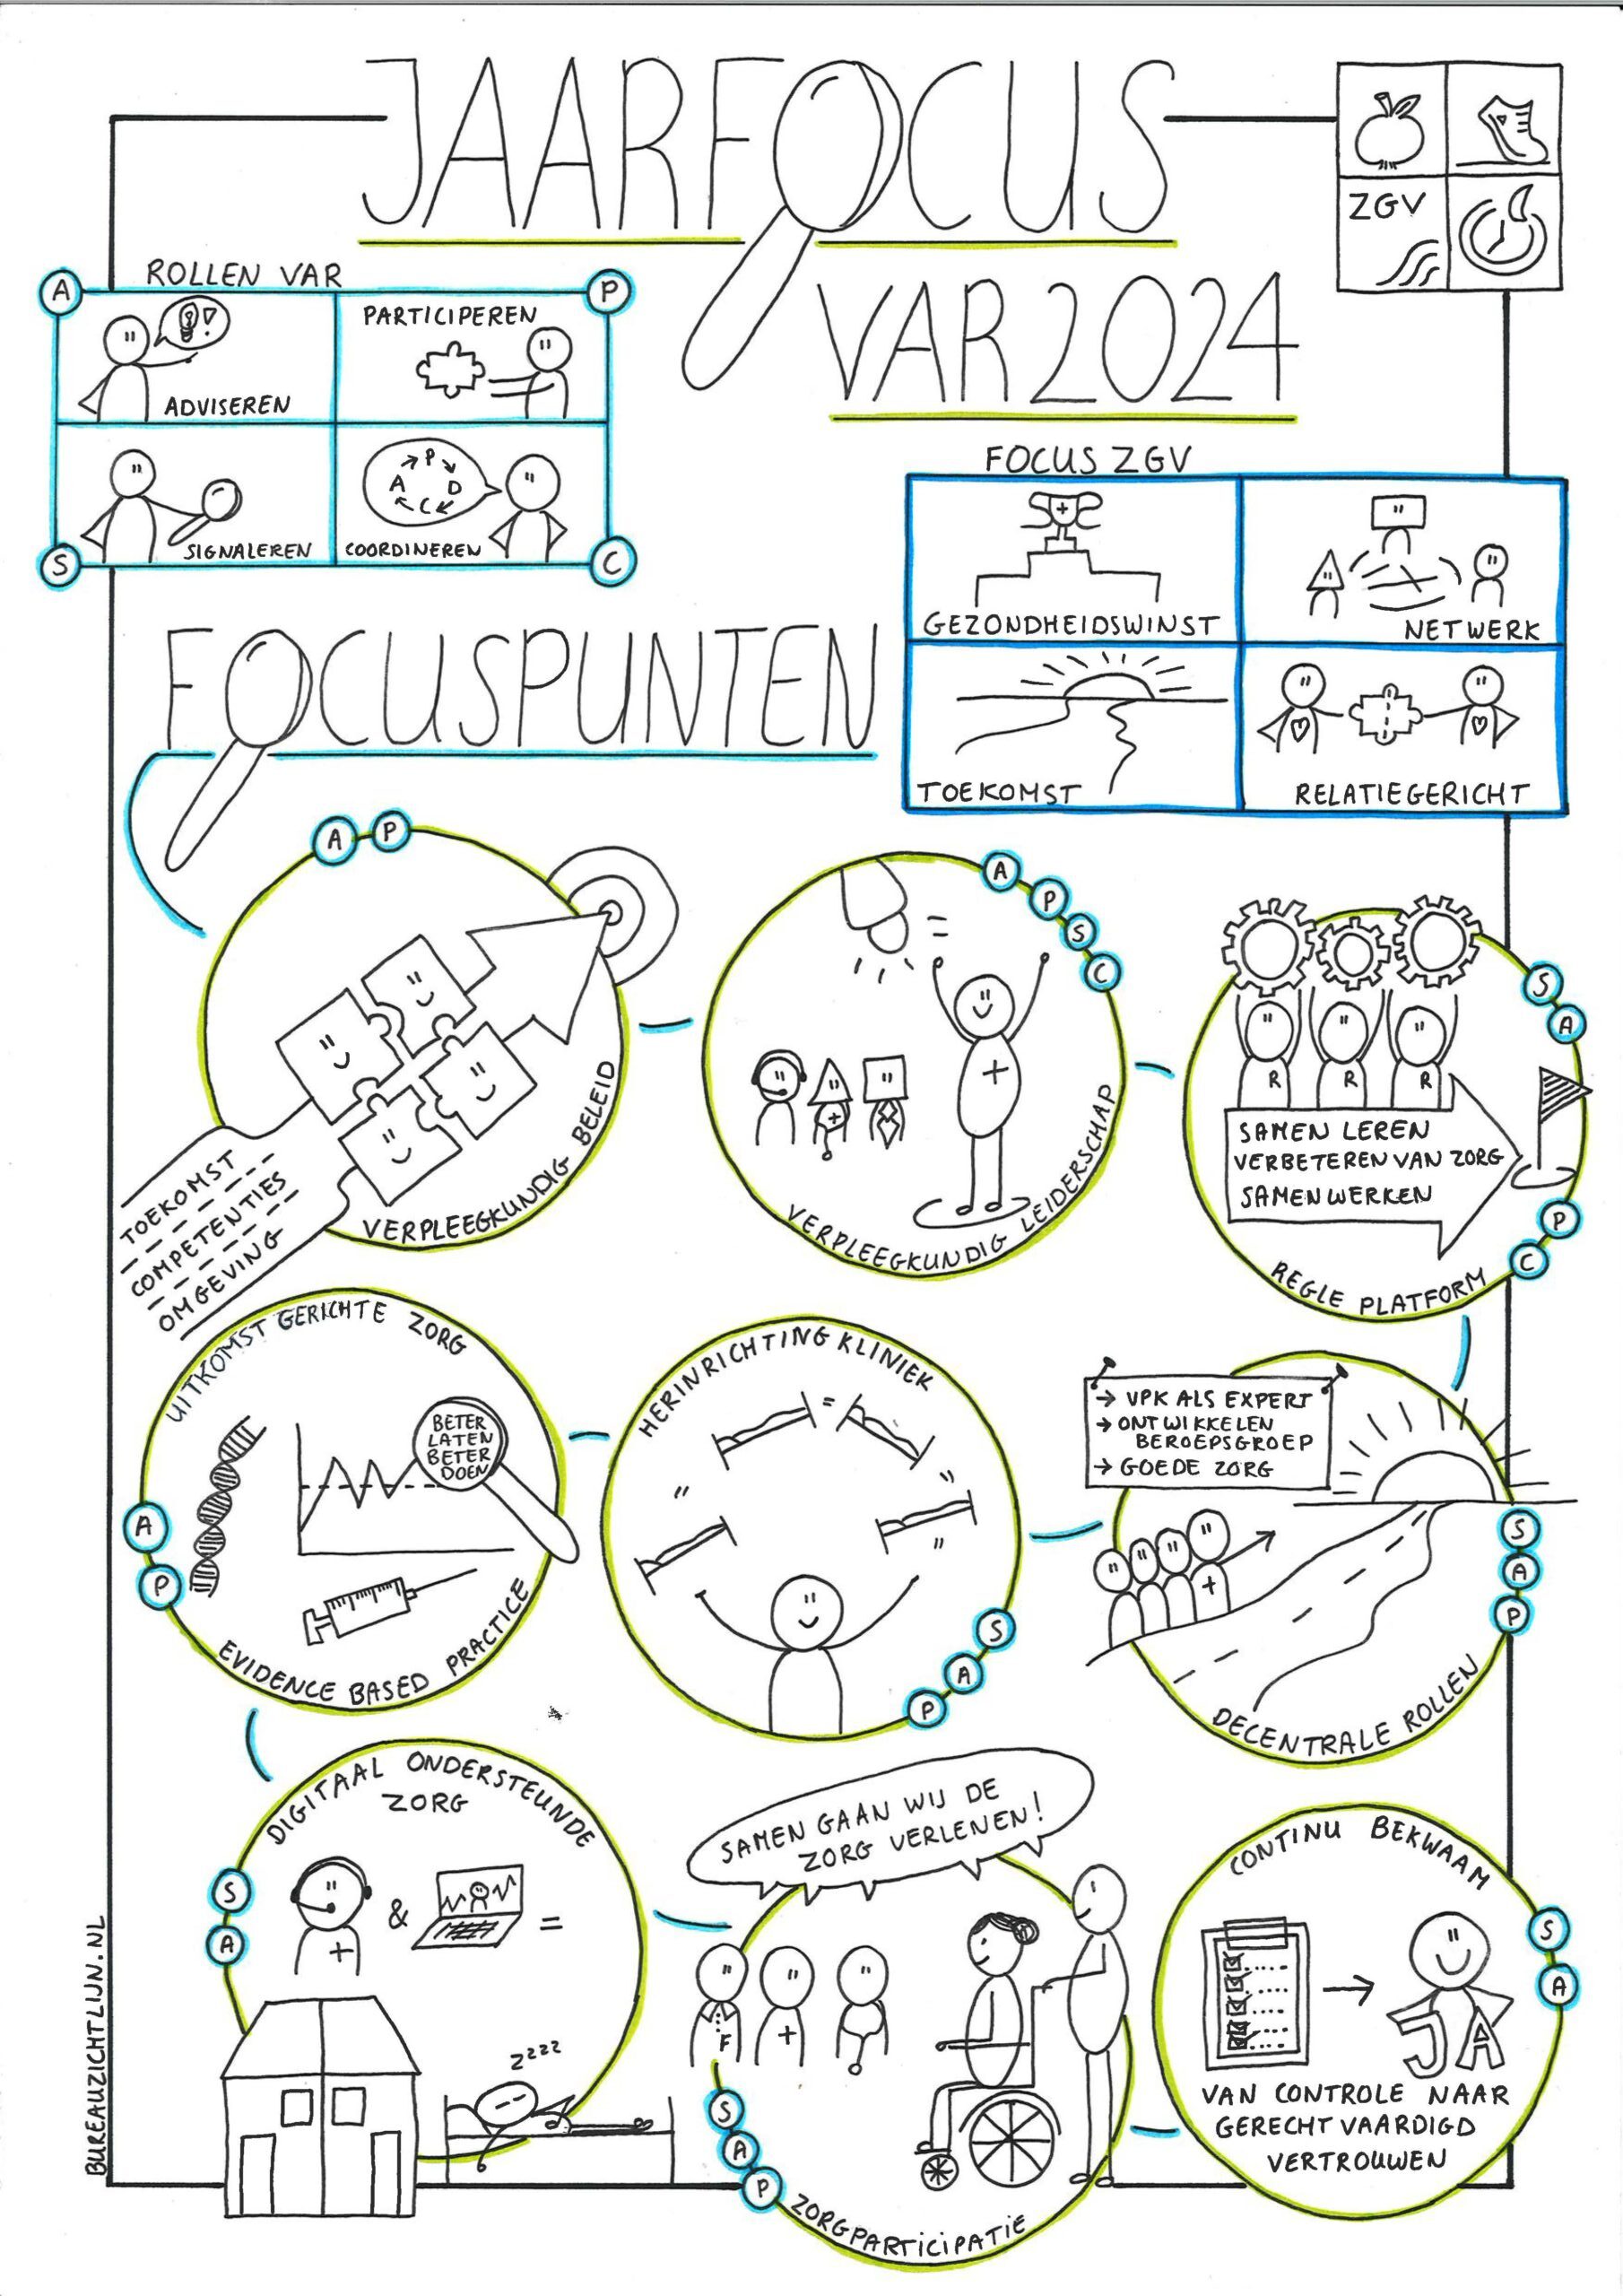 JAARFOCUS
VAR 2024
ZGV
ROLLEN VAR
A
P
ADVISEREN
PARTICIPEREN
P
A D
C
SIGNALEREN
COORDINEREN
S
C
FOCUS ZGV
GEZONDHEIDSWINST
NETWERK
TOEKOMST
RELATIEGERICHT
FOCUSPUNTEN
A P
TOEKOMST
COMPETENTIES
OMGEVING
VERPLEEGKUNDIG BELEID
A
P
S
C
=
VERPLEEGKUNDIG LEIDERSCHAP
S
A
R R R
SAMEN LEREN
VERBETEREN VAN ZORG
SAMENWERKEN
P
C
REGLE PLATFORM
→ VPK ALS EXPERT
→ ONTWIKKELEN
BEROEPSGROEP
→ GOEDE ZORG
S
A
P
DECENTRALE ROLLEN
HERINRICHTING KLINIEK
S
A
P
UITKOMST GERICHTE ZORG
BETER
LATEN
BETER
DOEN
A
P
EVIDENCE BASED PRACTICE
DIGITAAL ONDERSTEUNDE
ZORG
S
A
& =
zzzz
SAMEN GAAN WIJ DE
ZORG VERLENEN!
F
S
A
P
ZORGPARTICIPATIE
CONTINU BEKWAAM
S
A
JA
VAN CONTROLE NAAR
GERECHTVAARDIGD
VERTROUWEN
BUREAUZICHTLIJN.NL